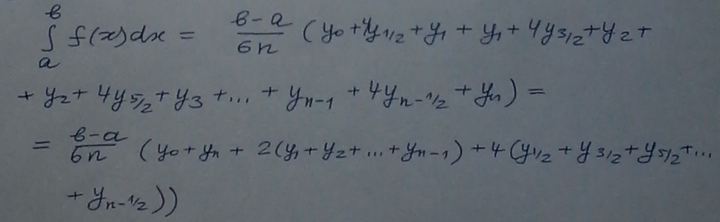 ∫ₐᵇ f(x)dx = (b-a)/6n (y₀ + 4y₁/₂ + y₁ + y₁ + 4y₃/₂ + y₂ +
+ y₂ + 4y₅/₂ + y₃ + ... + yₙ₋₁ + 4yₙ₋₁/₂ + yₙ) =
= (b-a)/6n (y₀ + yₙ + 2(y₁ + y₂ + ... + yₙ₋₁) + 4(y₁/₂ + y₃/₂ + y₅/₂ + ...
+ yₙ₋₁/₂))